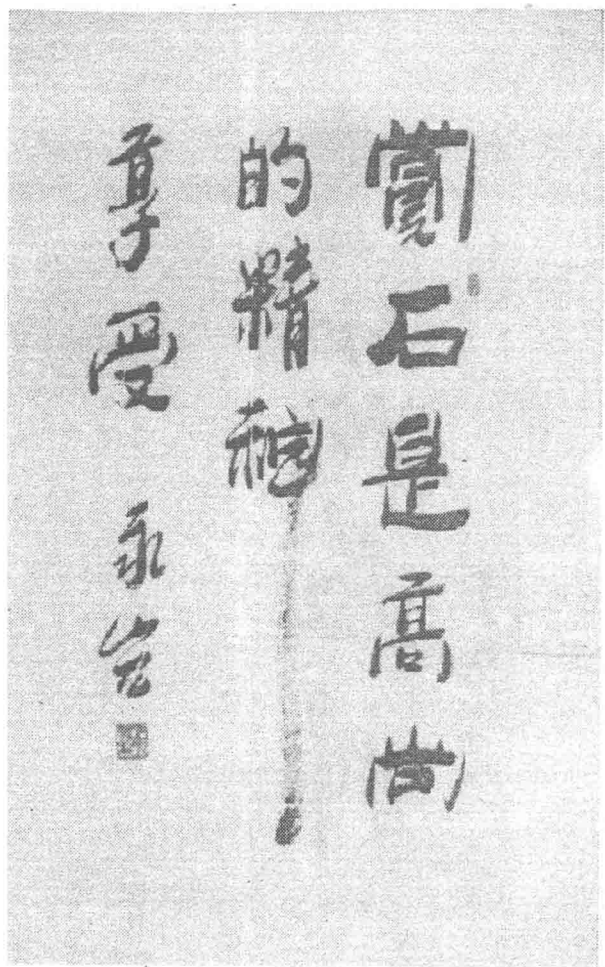 賞石是高尚
的精神
享受